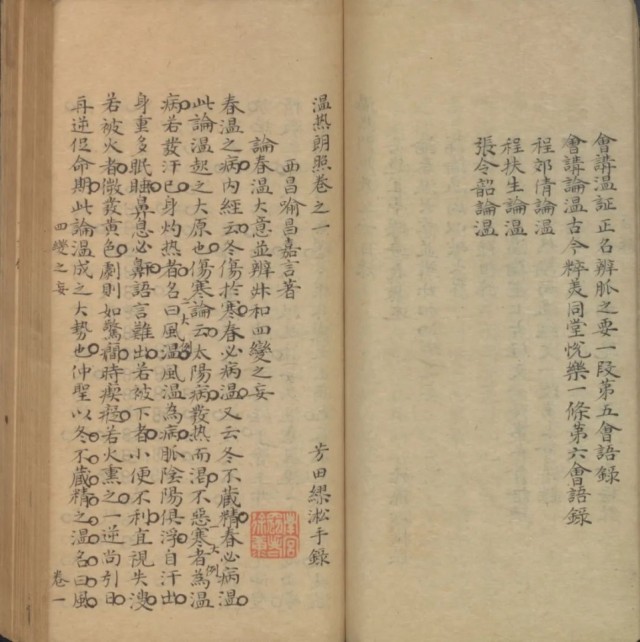 會講温証正名辨脈之要一段第五會語録
會講論温古今粹美同堂悦樂一條第六會語録
程郊倩論温
程扶生論温
張令韶論温
温热朗照卷之一
西昌喻昌嘉言著 步田繆淞手録
論春温大意並辨叔和四變之妄
春温之病内經云冬傷於寒春必病温又云冬不藏精春必病温
此論温起之大原也傷寒論云太陽病發热而渴不惡寒者為温
一大例
病若发汗已身灼热者名曰風温風温為病脉陰陽俱浮自汗出
一大例
身重多眠睡鼻息必鼾語言難出若被下者小便不利直視失溲
若被火者微發黄色劇則如驚癇時瘈瘲若火熏之一逆尚引日
再逆促命期此論温成之大勢也仲聖以冬不藏精之温名曰風
四變之妄 卷一